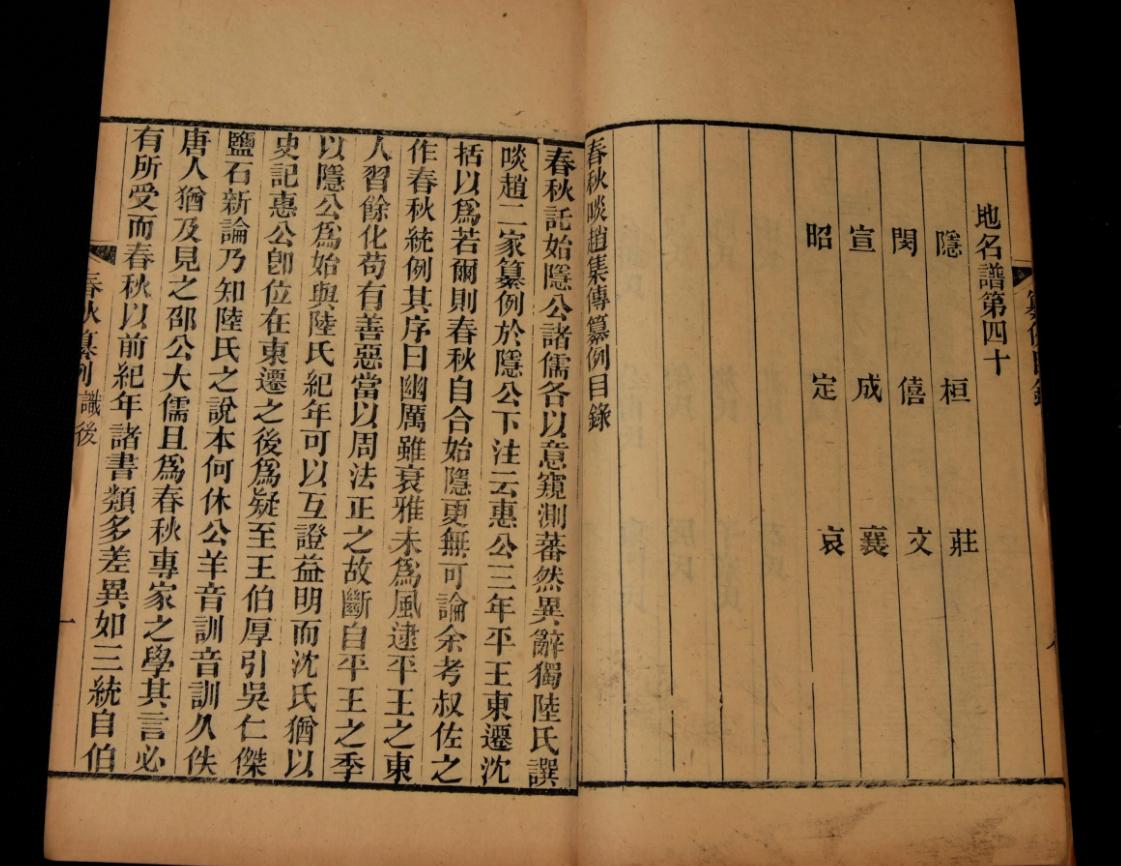 地名譜第四十
隱 桓 莊
閔 僖 文
宣 成 襄
昭 定 哀
春秋啖趙集傳纂例目錄
春秋託始隱公諸儒各以意窺測蕃然異辭獨陸氏譔
啖趙二家纂例於隱公下注云惠公三年平王東遷沈
括以爲若爾則春秋自合始隱更無可論余考叔佐之
作春秋統例其序曰幽厲雖衰雅未爲風逮平王之東
人習餘化苟有善惡當以周法正之故斷自平王之季
以隱公爲始與陸氏紀年可以互證益明而沈氏猶以
史記惠公卽位在東遷之後爲疑至王伯厚引吳仁傑
鹽石新論乃知陸氏之說本何休公羊音訓音訓久佚
唐人猶及見之邵公大儒且爲春秋專家之學其言必
有所受而春秋以前紀年諸書類多差異如三統自伯
春秋纂例 識後 一